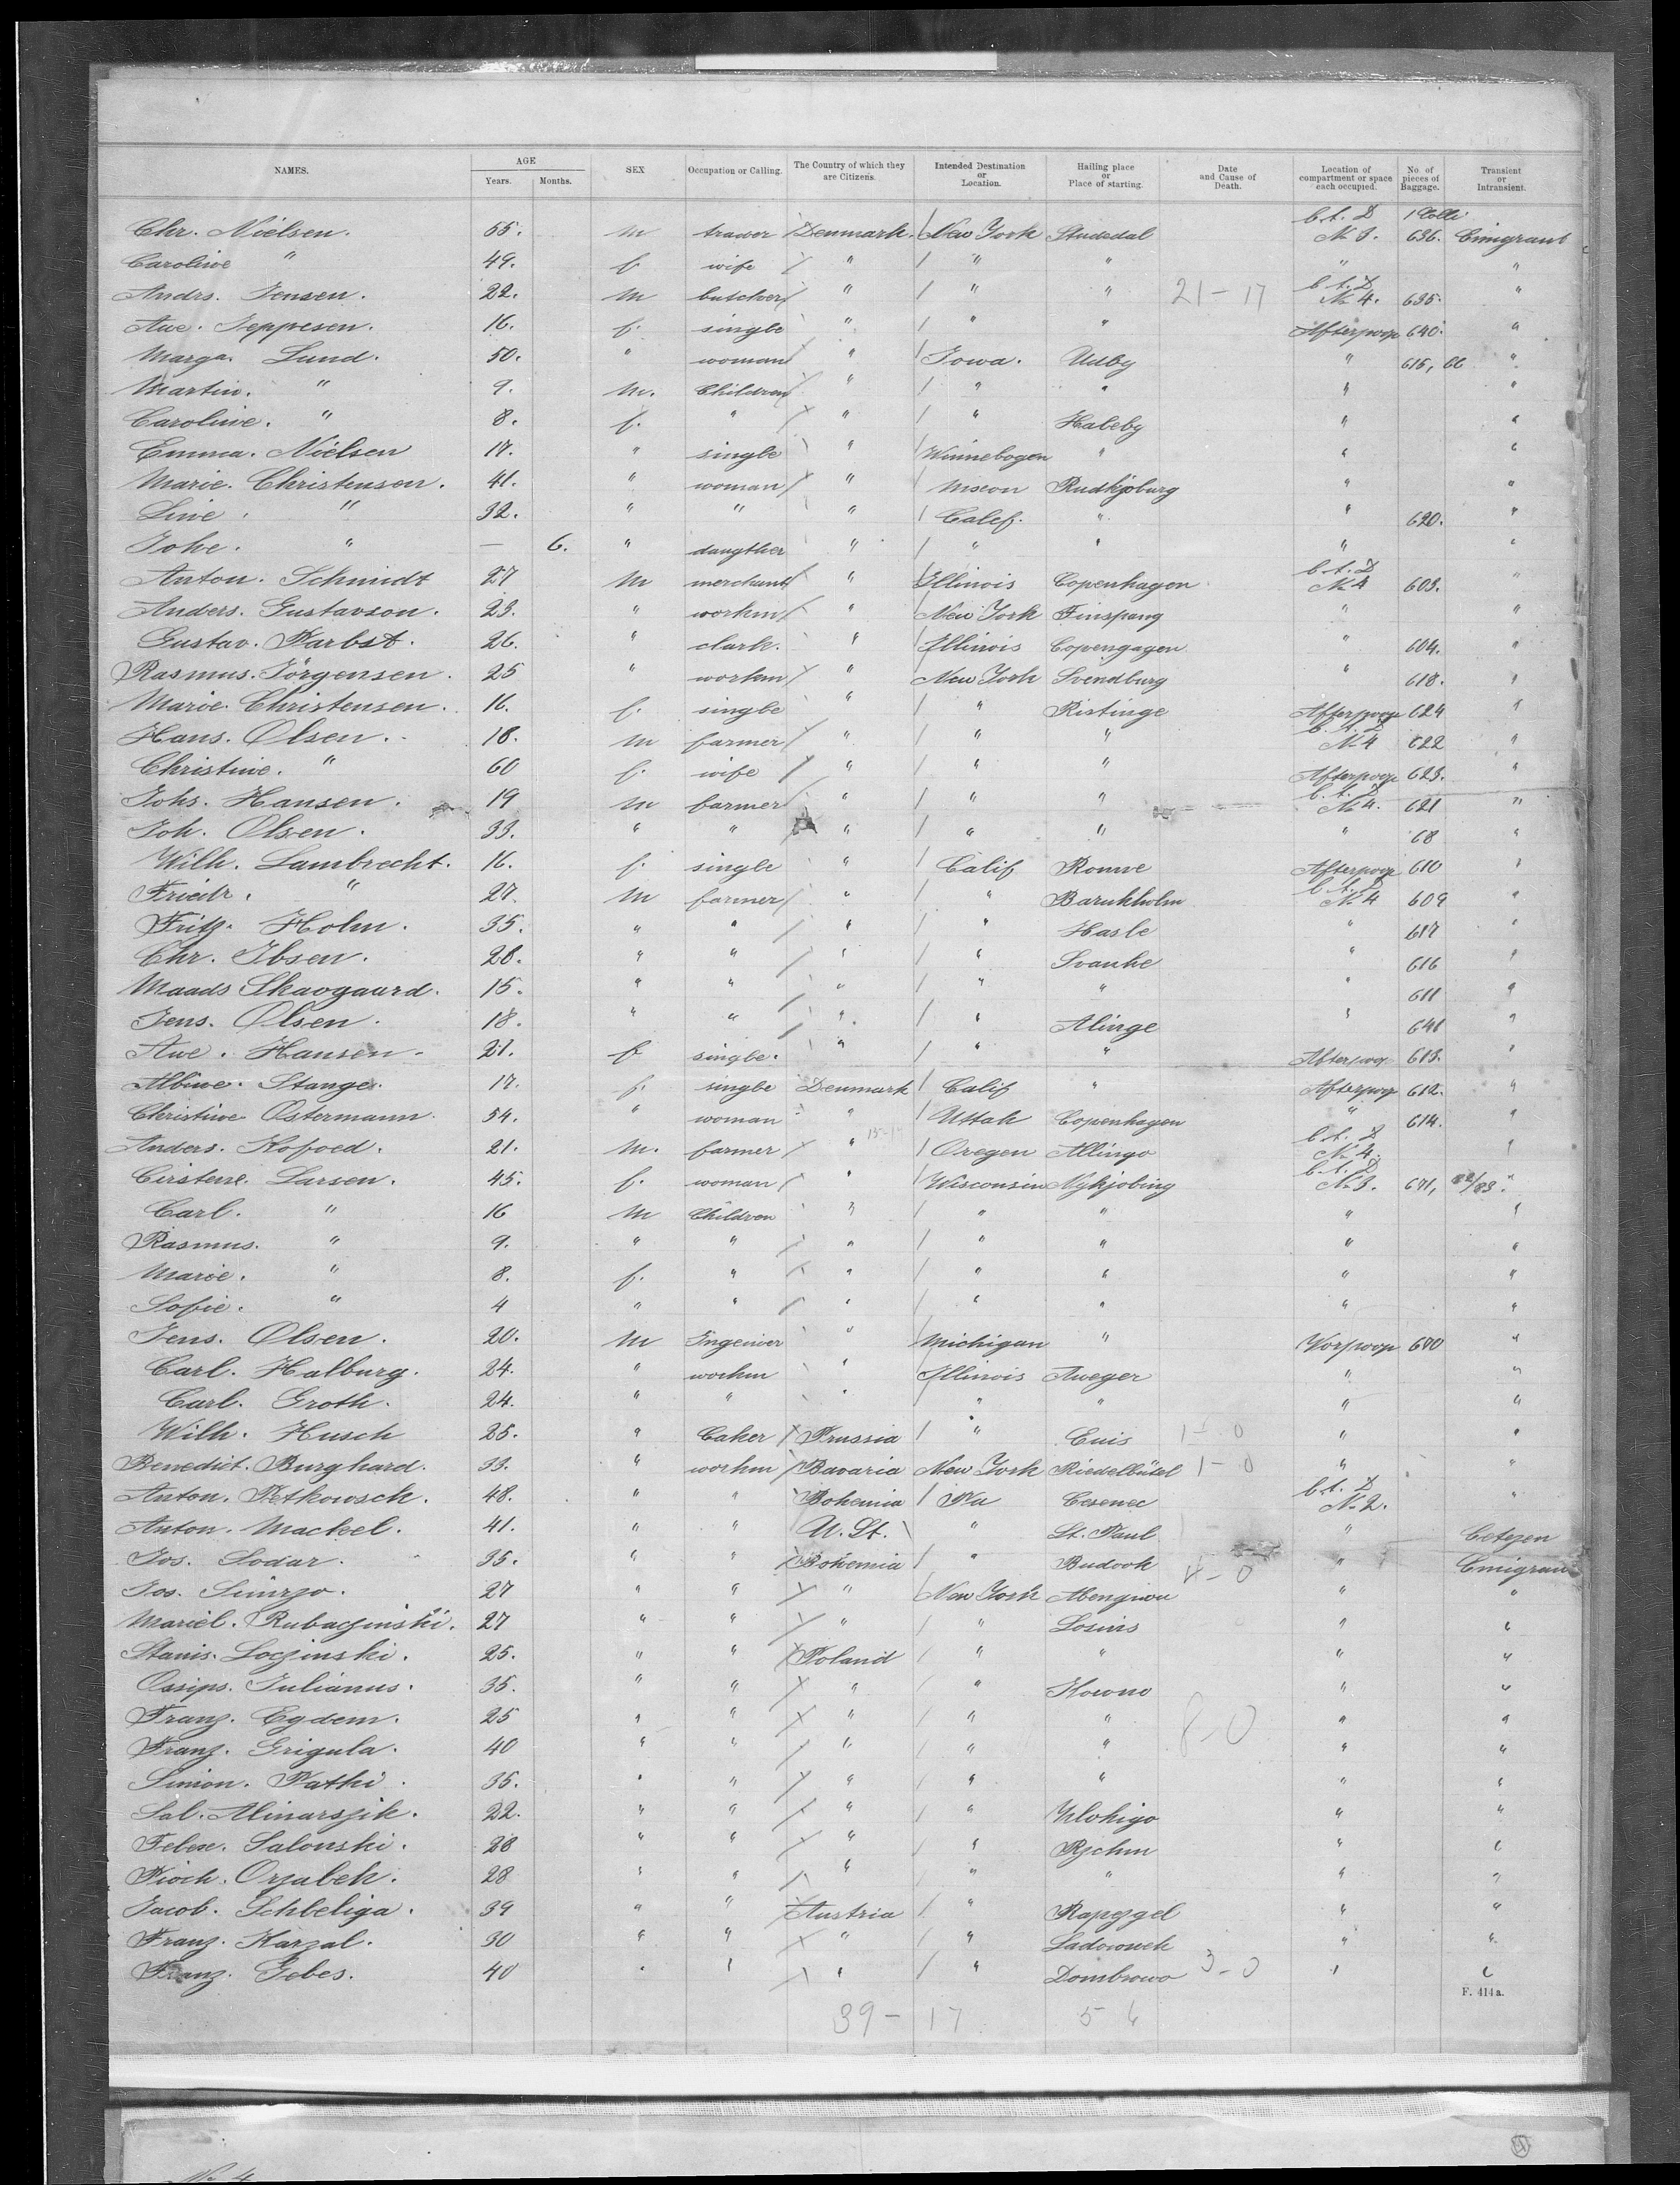 NAMES. AGE Years. Months. SEX Occupation or Calling. The Country of which they are Citizens. Intended Destination or Location. Hailing place or Place of starting. Date and Cause of Death. Location of compartment or space each occupied. No. of pieces of Baggage. Transient or Intransient.
Chr. Nielsen. 55. m Denmark. New York N 3. 1 Colli 636. Emigrant
Caroline " 49. f. wife " " " " "
Andrs. Jensen. 22. m " " " 21-17 N 4. 635. "
Ane. Jeppesen. 16. f. single " " " Afterpoop 640. "
Marga. Lund. 50. " woman " Iowa. Udby " 615, "
Martin. " 9. m. Children " " " " "
Caroline. " 8. f. " " " Haleby " "
Emma. Nielsen 17. " single " Winnebogen " " "
Marie. Christensen. 41. " woman " Rudkjoburg " "
Line. " 32. " " " Calif. " " 620. "
Johe. " — 6. " daugther " " " " "
Anton. Schmidt 27 m merchant " Illinois Copenhagen N 4 603. "
Anders. Gustavson. 23. " workm " New York Finspang " "
Gustav. Farbst. 26. " clark. " Illinois Copengagen " 604. "
Rasmus. Jörgensen. 25 " workm " New York Svendburg " 618. "
Marie. Christensen. 16. f. single " " Ristinge Afterpoop 624 "
Hans. Olsen. 18. m farmer " " " N 4 622 "
Christine. " 60 f. wife " " " Afterpoop 623. "
Johs. Hansen. 19 m farmer " " " N 4. 621 "
Joh. Olsen. 33. " " " " " " 68 "
Wilh. Lambrecht. 16. f. single " Calif Ronne Afterpoop 610 "
Friedr. " 27. m farmer " " Barnkholm N 4 609 "
Fritz. Holm. 35. " " " " Hasle " 617 "
Chr. Ibsen. 28. " " " " Svanke " 616 "
Maads Skavgaard. 15. " " " " " " 611 "
Jens. Olsen. 18. " " " " Alinge " 641 "
Ane. Hansen. 21. f single. " " " Afterpoop 613. "
Albine. Stange. 17. f. single Denmark Calif " Afterpoop 612. "
Christine Ostermann. 54. " woman " Uttah Copenhagen " 614. "
Anders. Kofoed. 21. m. farmer " Oregen Allingo N 4. "
Cirstene. Larsen. 45. f. woman " Wisconsin Nykjobing N 3. 671, 82/83. "
Carl. " 16 m Children " " " " "
Rasmus. " 9. " " " " " " "
Marie. " 8. f. " " " " " "
Sofie. " 4 " " " " " " "
Jens. Olsen. 20. m Ingenier " Michigan " Vorpoop 670 "
Carl. Halburg. 24. " workm " Illinois Aneger " "
Carl. Groth. 24. " " " " " " "
Wilh. Husch 25. " Caker Prussia " 1-0 " "
Benedict. Burghard. 33. " workm Bavaria New York Riedelbütel 1-0 " "
Anton. Petkowsch. 48. " " Bohemia Cesenec N 2. "
Anton. Mackel. 41. " " U. St. " St. Paul " Cetezen
Jos. Sodar. 35. " " Bohemia " Budook 4-0 " Emigrant
Jos. 27 " " " New York " "
Mariel. Rubaczinski. 27 " " " " Losins " "
Stanis. Loczinski. 25. " " Poland " " " "
Ossips. Julianus. 35. " " " " Kowno " "
Franz. Egdem. 25 " " " " " 8-0 " "
Franz. Grigula. 40 " " " " " " "
Simon. Pathi. 35. " " " " " " "
Sal. Alinarszik. 22. " " " " " "
Felex. Salonski. 28 " " " " Rychm " "
Pioch. Orzabek. 28 " " " " " " "
Jacob. Schbeliga. 39 " " Austria " Rapezgel " "
Franz. Karzal. 30 " " " " Ladownek " "
Franz. Gebes. 40 " " " " Dombrowo 3-0 " "
F. 414a.
39-17 5 6
No 4